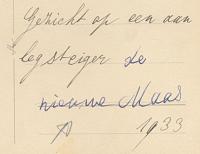 Gezicht op een aan
legsteiger de
nieuwe Maas
1933